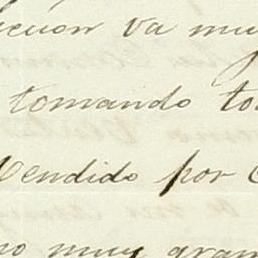 cción va mu
tomando to
Vendido por
no muy gran